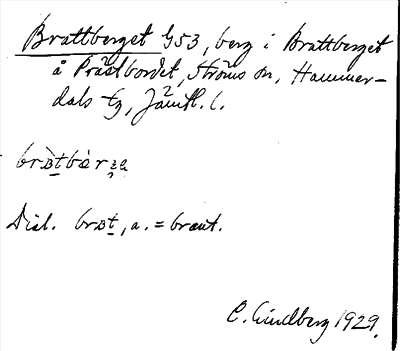 Brattberget G53, berg i Brattberget
å Prästbordet, Ströms sn, Hammer-
dals tg, Jämtl. l.
Dial. a. = brant.
C. Lindberg 1929.